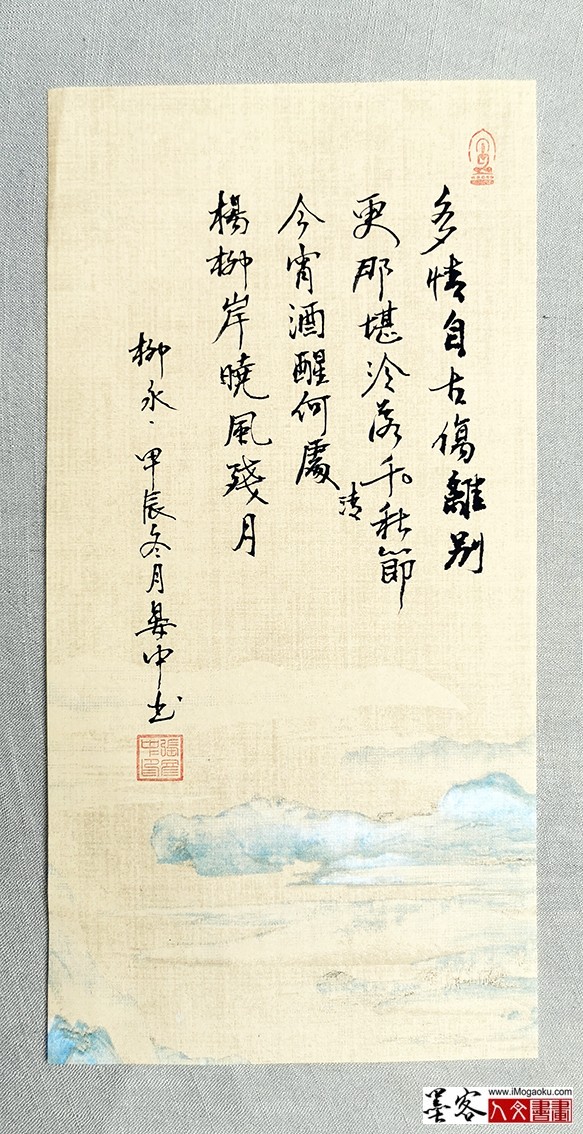 多情自古傷離別
更那堪冷落千秋節
清
今宵酒醒何處
楊柳岸曉風殘月
柳永·甲辰冬月中书
墨客
www.iMogaoku.com
人文書畫